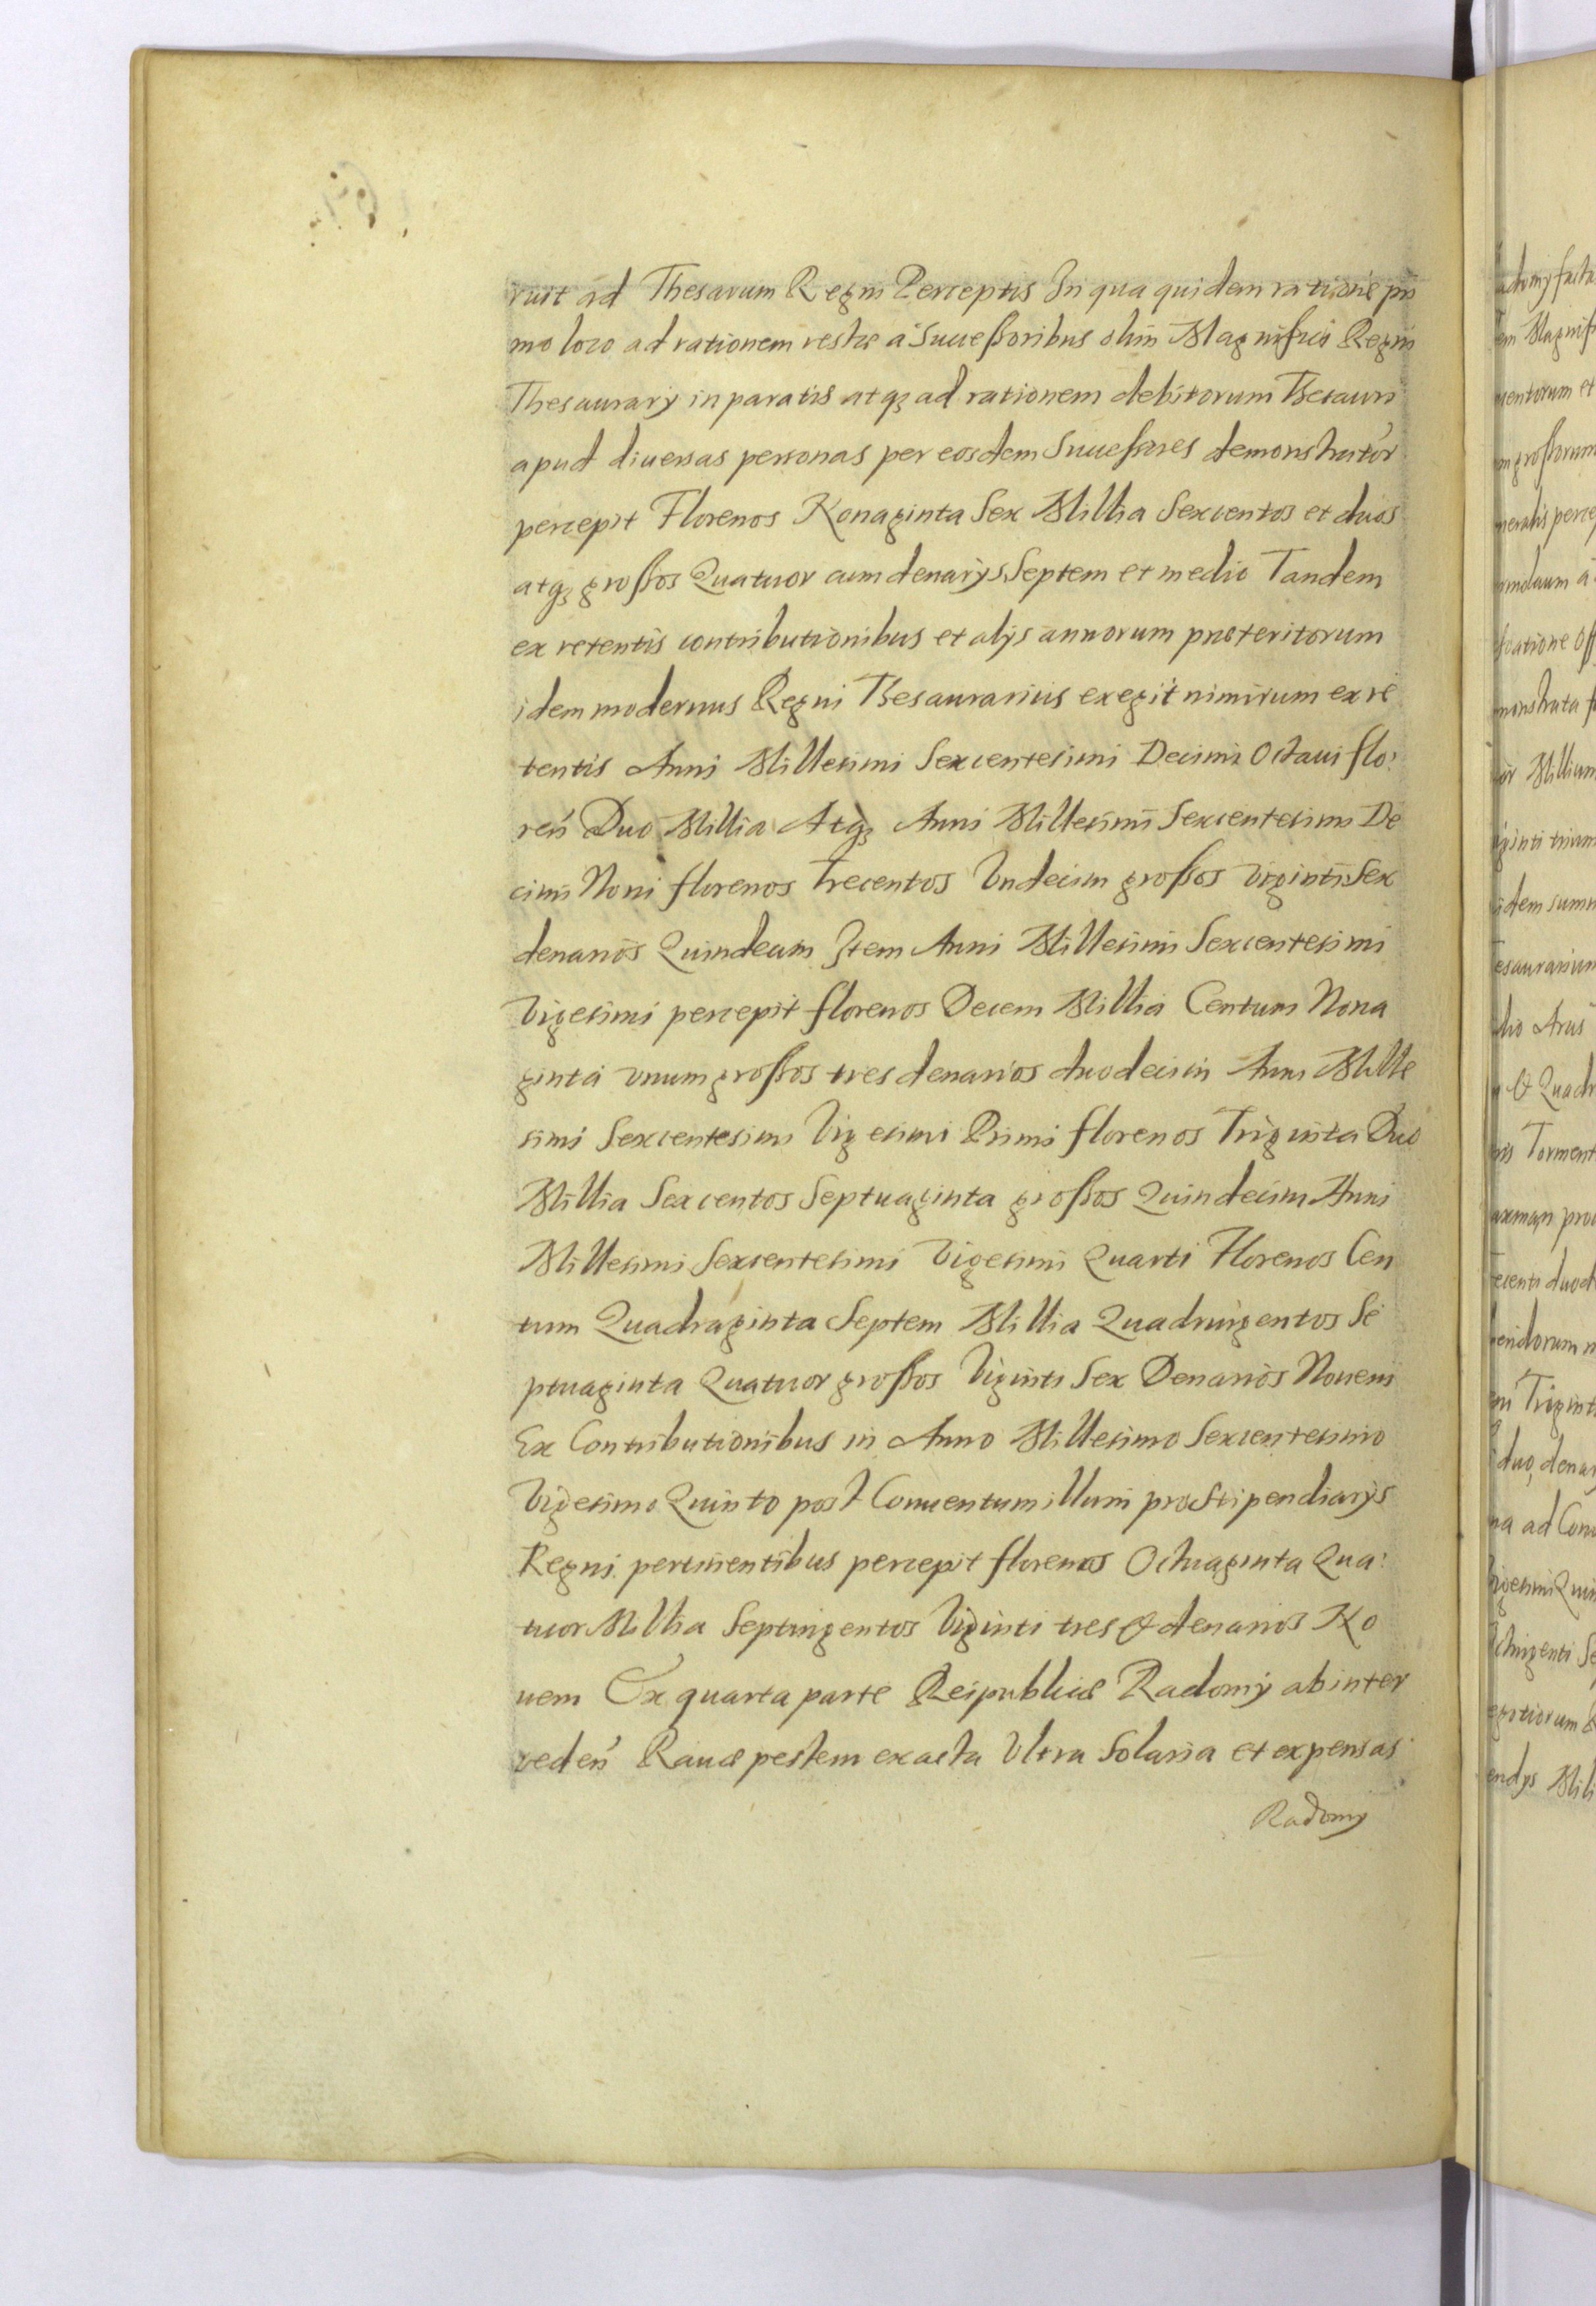 ruit ad Thesarum Regni Perceptis In qua quidem ratione pri
mo loco ad rationem restae a Successoribus olim Magnifici Regni
Thesaurarÿ in paratis atqꝫ ad rationem debitorum Thesauri
apud diuersas personas per eosdem Successores demonstrator
percepit Florenos Nonaginta Sex Millia Sexcentos et duos
atqꝫ grossos Quatuor cum denarÿs Septem et medio Tandem
ex retentis contributionibus et alÿs annorum praeteritorum
idem modernus Regni Thesaurarius exegit nimirum ex re
tentis Anni Millesimi Sexcentesimi Decimi Octaui flo:
reń Duo Millia Atqꝫ Anni Millesimi Sexcentesimi De
cimi Noni florenos Trecentos Vndecim grossos Viginti Sex
denarios Quindecim Item Anni Millesimi Sexcentesimi
Vigesimi percepit florenos Decem Millia Centum Nona
ginta vnum grossos tres denarios duodecim Anni Mille
simi Sexcentesimi Vigesimi Primi florenos Triginta Duo
Millia Sexcentos Septuaginta grossos Quindecim Anni
Millesimi Sexcentesimi Vigesimi Quarti Florenos Cen
tum Quadraginta Septem Millia Quadringentos Se
ptuaginta Quatuor grossos Viginti Sex Denarios Nouem
Ex Contributionibus in Anno Millesimo Sexcentesimo
Vigesimo Quinto post Conuentum illum pro Stipendiarÿs
Regni pertinentibus percepit florenos Octuaginta Qua:
tuor Millia Septingentos Viginti tres & denarios No
uem Ex quarta parte Reipublicae Radomÿ ab inter
reden̄ Rauae pestem exacta Vltra Solaria et expensas
Radomÿ